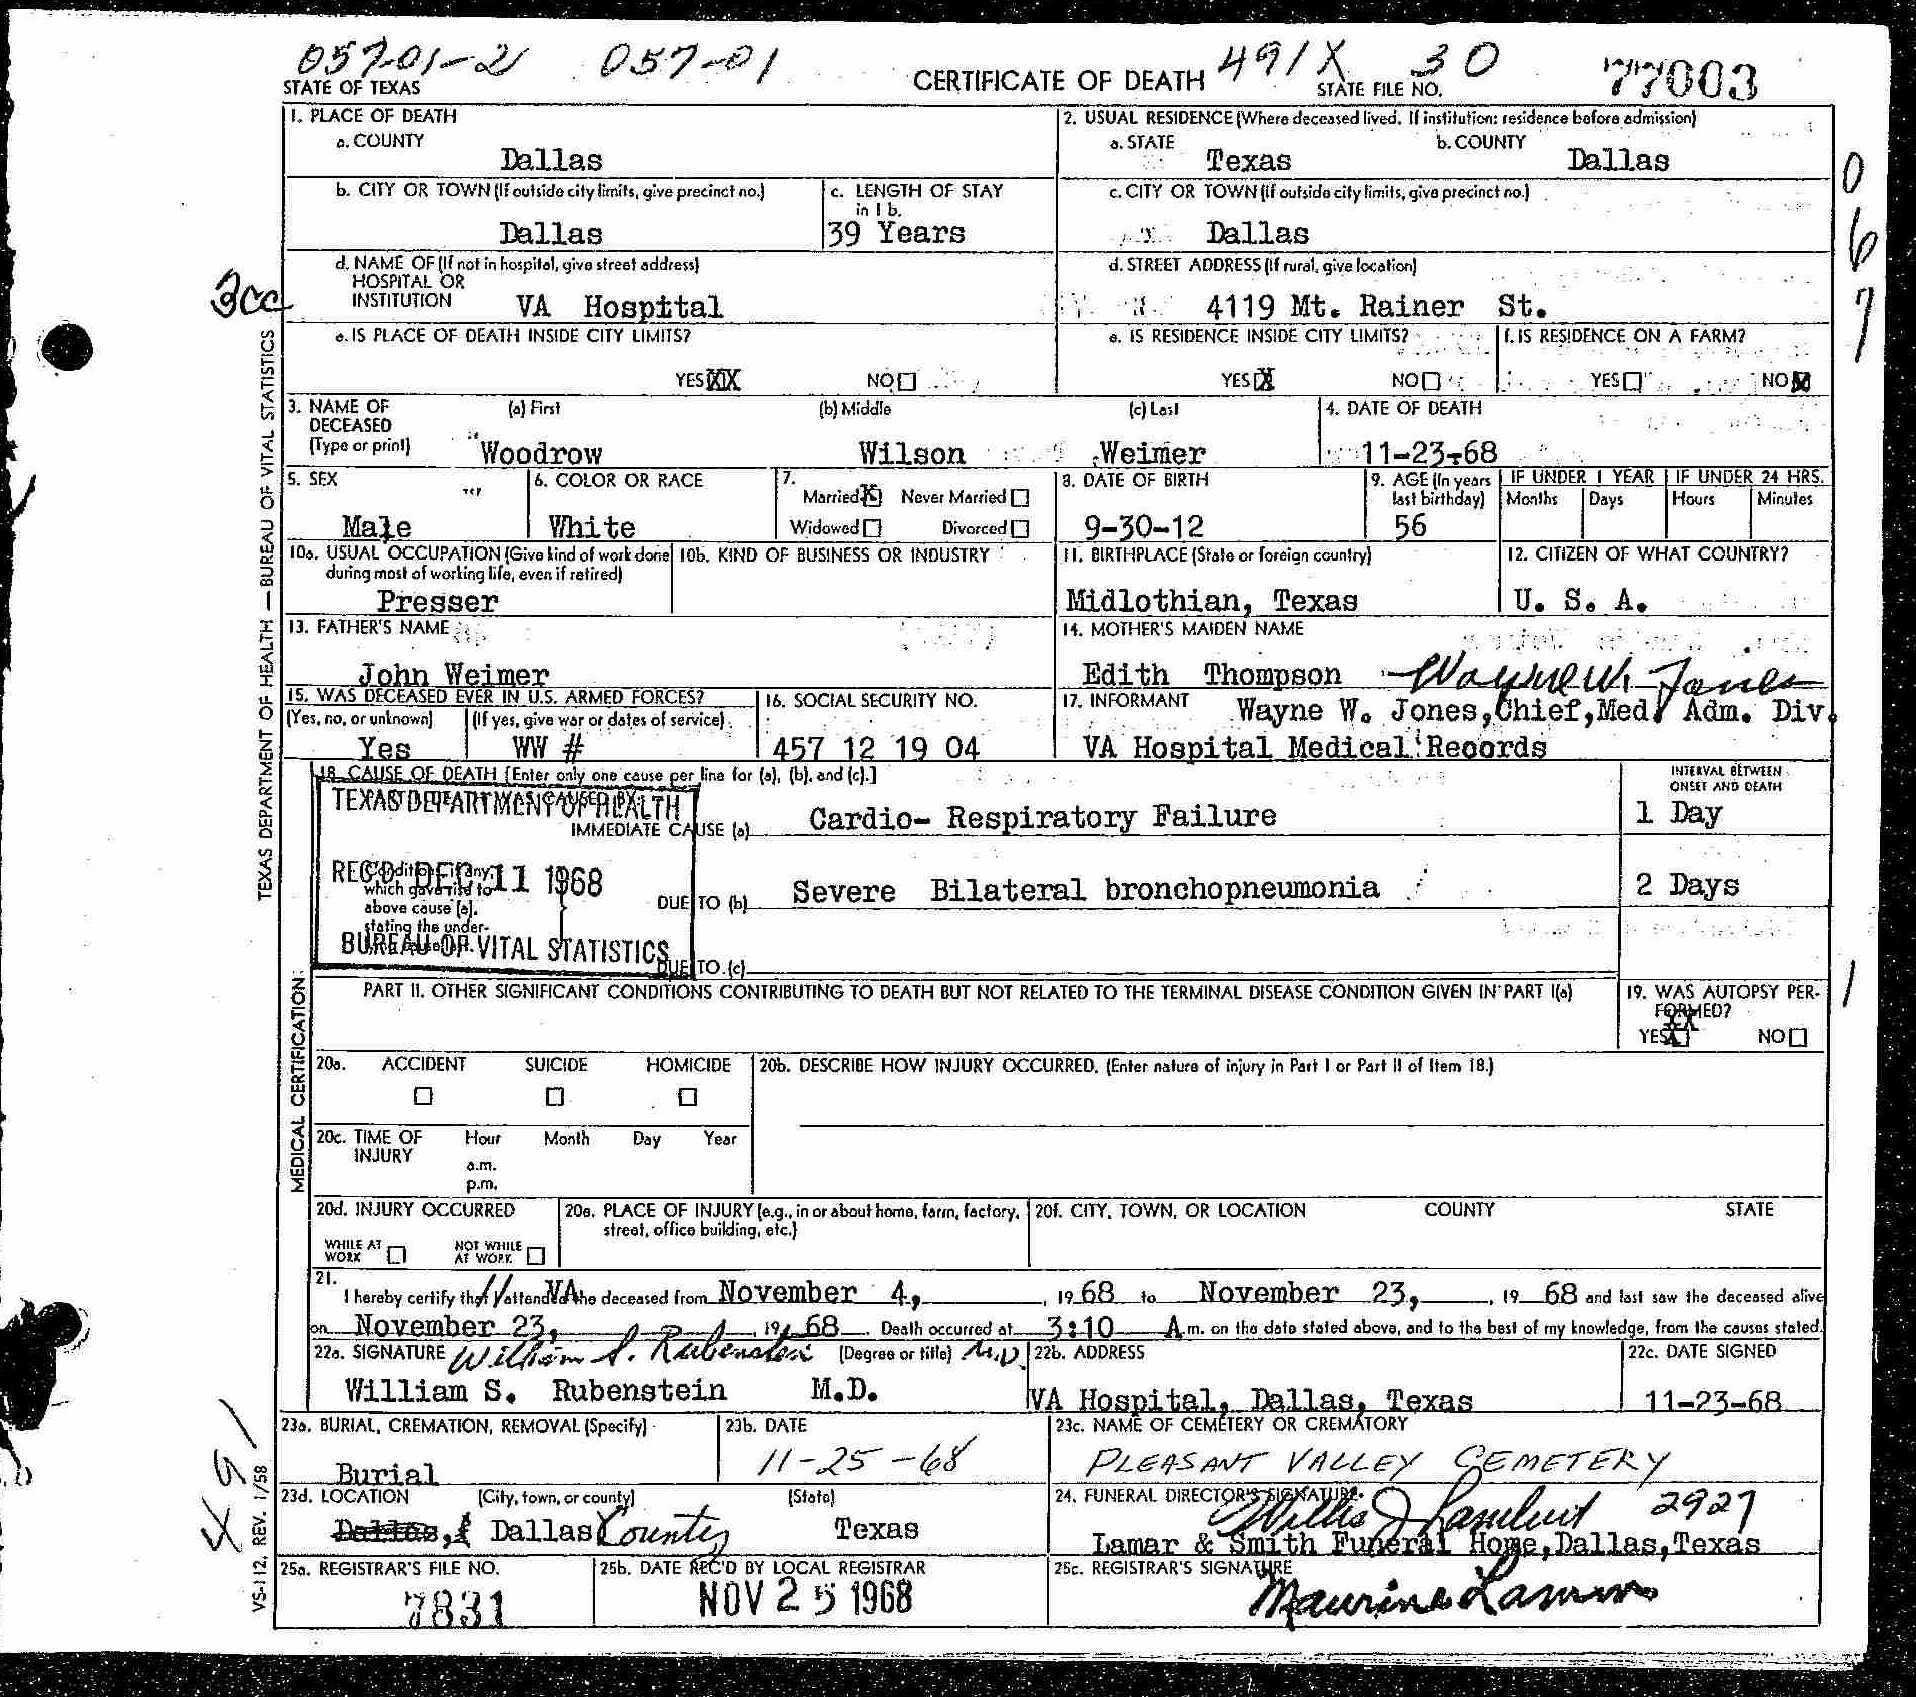 057-01-2 057-01 491X 30 77003
STATE OF TEXAS CERTIFICATE OF DEATH STATE FILE NO.
1. PLACE OF DEATH
a. COUNTY
Dallas
2. USUAL RESIDENCE (Where deceased lived. If institution: residence before admission)
a. STATE b. COUNTY
Texas Dallas
b. CITY OR TOWN (If outside city limits, give precinct no.)
Dallas
c. LENGTH OF STAY
in 1 b.
39 Years
c. CITY OR TOWN (If outside city limits, give precinct no.)
Dallas
d. NAME OF (If not in hospital, give street address)
HOSPITAL OR
INSTITUTION VA Hospital
d. STREET ADDRESS (If rural, give location)
4119 Mt. Rainer St.
3cc
067
e. IS PLACE OF DEATH INSIDE CITY LIMITS?
YES XX NO
e. IS RESIDENCE INSIDE CITY LIMITS?
YES X NO
f. IS RESIDENCE ON A FARM?
YES NO X
3. NAME OF
DECEASED
(Type or print)
(a) First (b) Middle (c) Last
Woodrow Wilson Weimer
4. DATE OF DEATH
11-23-68
5. SEX
Male
6. COLOR OR RACE
White
7.
Married X Never Married
Widowed Divorced
8. DATE OF BIRTH
9-30-12
9. AGE (In years
last birthday)
56
IF UNDER 1 YEAR IF UNDER 24 HRS.
Months Days Hours Minutes
10a. USUAL OCCUPATION (Give kind of work done
during most of working life, even if retired)
Presser
10b. KIND OF BUSINESS OR INDUSTRY
11. BIRTHPLACE (State or foreign country)
Midlothian, Texas
12. CITIZEN OF WHAT COUNTRY?
U. S. A.
13. FATHER'S NAME
John Weimer
14. MOTHER'S MAIDEN NAME
Edith Thompson Wayne W. Jones
15. WAS DECEASED EVER IN U.S. ARMED FORCES?
(Yes, no, or unknown) (If yes, give war or dates of service)
Yes WW #
16. SOCIAL SECURITY NO.
457 12 19 04
17. INFORMANT Wayne W. Jones, Chief, Med. Adm. Div.
VA Hospital Medical Records
TEXAS DEPARTMENT OF HEALTH — BUREAU OF VITAL STATISTICS
18. CAUSE OF DEATH [Enter only one cause per line for (a), (b), and (c).]
INTERVAL BETWEEN
ONSET AND DEATH
TEXAS DEPARTMENT OF HEALTH
REC'D DEC 11 1968
BUREAU OF VITAL STATISTICS
IMMEDIATE CAUSE (a) Cardio- Respiratory Failure 1 Day
which gave rise to
above cause (a),
stating the under-
DUE TO (b) Severe Bilateral bronchopneumonia 2 Days
DUE TO (c)
MEDICAL CERTIFICATION
PART II. OTHER SIGNIFICANT CONDITIONS CONTRIBUTING TO DEATH BUT NOT RELATED TO THE TERMINAL DISEASE CONDITION GIVEN IN PART I(a)
19. WAS AUTOPSY PER-
FORMED?
YES XX NO
1
20a. ACCIDENT SUICIDE HOMICIDE
20b. DESCRIBE HOW INJURY OCCURRED. (Enter nature of injury in Part I or Part II of Item 18.)
20c. TIME OF
INJURY
Hour Month Day Year
a.m.
p.m.
20d. INJURY OCCURRED
WHILE AT
WORK
NOT WHILE
AT WORK
20e. PLACE OF INJURY (e.g., in or about home, farm, factory,
street, office building, etc.)
20f. CITY, TOWN, OR LOCATION COUNTY STATE
21.
I hereby certify that VA attended the deceased from November 4, 1968 to November 23, 19 68 and last saw the deceased alive
on November 23, 19 68. Death occurred at 3:10 A m. on the date stated above, and to the best of my knowledge, from the causes stated.
22a. SIGNATURE William S. Rubenstein (Degree or title) M.D.
William S. Rubenstein M.D.
22b. ADDRESS
VA Hospital, Dallas, Texas
22c. DATE SIGNED
11-23-68
23a. BURIAL, CREMATION, REMOVAL (Specify)
Burial
23b. DATE
11-25-68
23c. NAME OF CEMETERY OR CREMATORY
PLEASANT VALLEY CEMETERY
491
23d. LOCATION (City, town, or county) (State)
Dallas, Dallas County Texas
24. FUNERAL DIRECTOR'S SIGNATURE
Willis J Lambert 2927
Lamar & Smith Funeral Home, Dallas, Texas
25a. REGISTRAR'S FILE NO.
7831
25b. DATE REC'D BY LOCAL REGISTRAR
NOV 25 1968
25c. REGISTRAR'S SIGNATURE
Maurine
VS-112. REV. 1/58